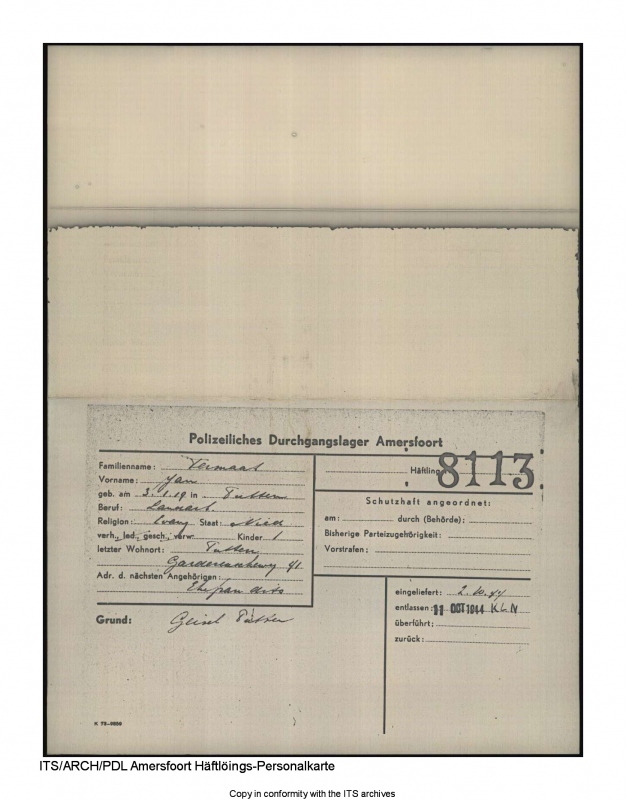 Polizeiliches Durchgangslager Amersfoort
Familienname: Termaat
Vorname: Jan
geb. am 3.1.19 in Putten
Beruf: Landarb.
Religion: Evang Staat: Nied
verh., led., gesch., verw. Kinder 1
letzter Wohnort: Putten
41
Adr. d. nächsten Angehörigen:
Ehefrau dito
Grund: Geisel Putten
Häftling 8113
Schutzhaft angeordnet:
am: durch (Behörde):
Bisherige Parteizugehörigkeit:
Vorstrafen:
eingeliefert: 2.10.44
entlassen: 11 OCT 1944 KLN
überführt:
zurück:
ITS/ARCH/PDL Amersfoort Häftlöings-Personalkarte
Copy in conformity with the ITS archives